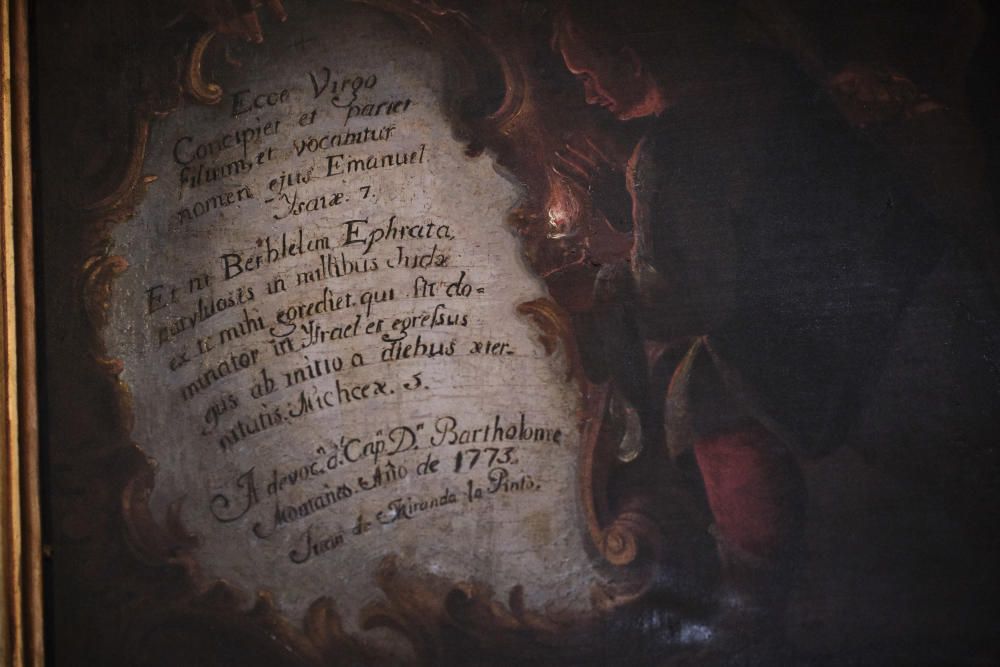 Ecce Virgo
Concipiet et pariet
filium, et vocabitur
nomen ejus Emanuel
Ysaiæ. 7.
Et tu Bethlelem Ephrata,
parvulus es in millibus Judæ
ex te mihi egrediet. qui sit do=
minator in Ysrael et egressus
ejus ab initio a diebus æter-
nitatis. Michceæ. 5.
A devoc.n d.l Cap.n D.n Bartholome
Montañes. Año de 1773.
Juan de Miranda lo Pintò.